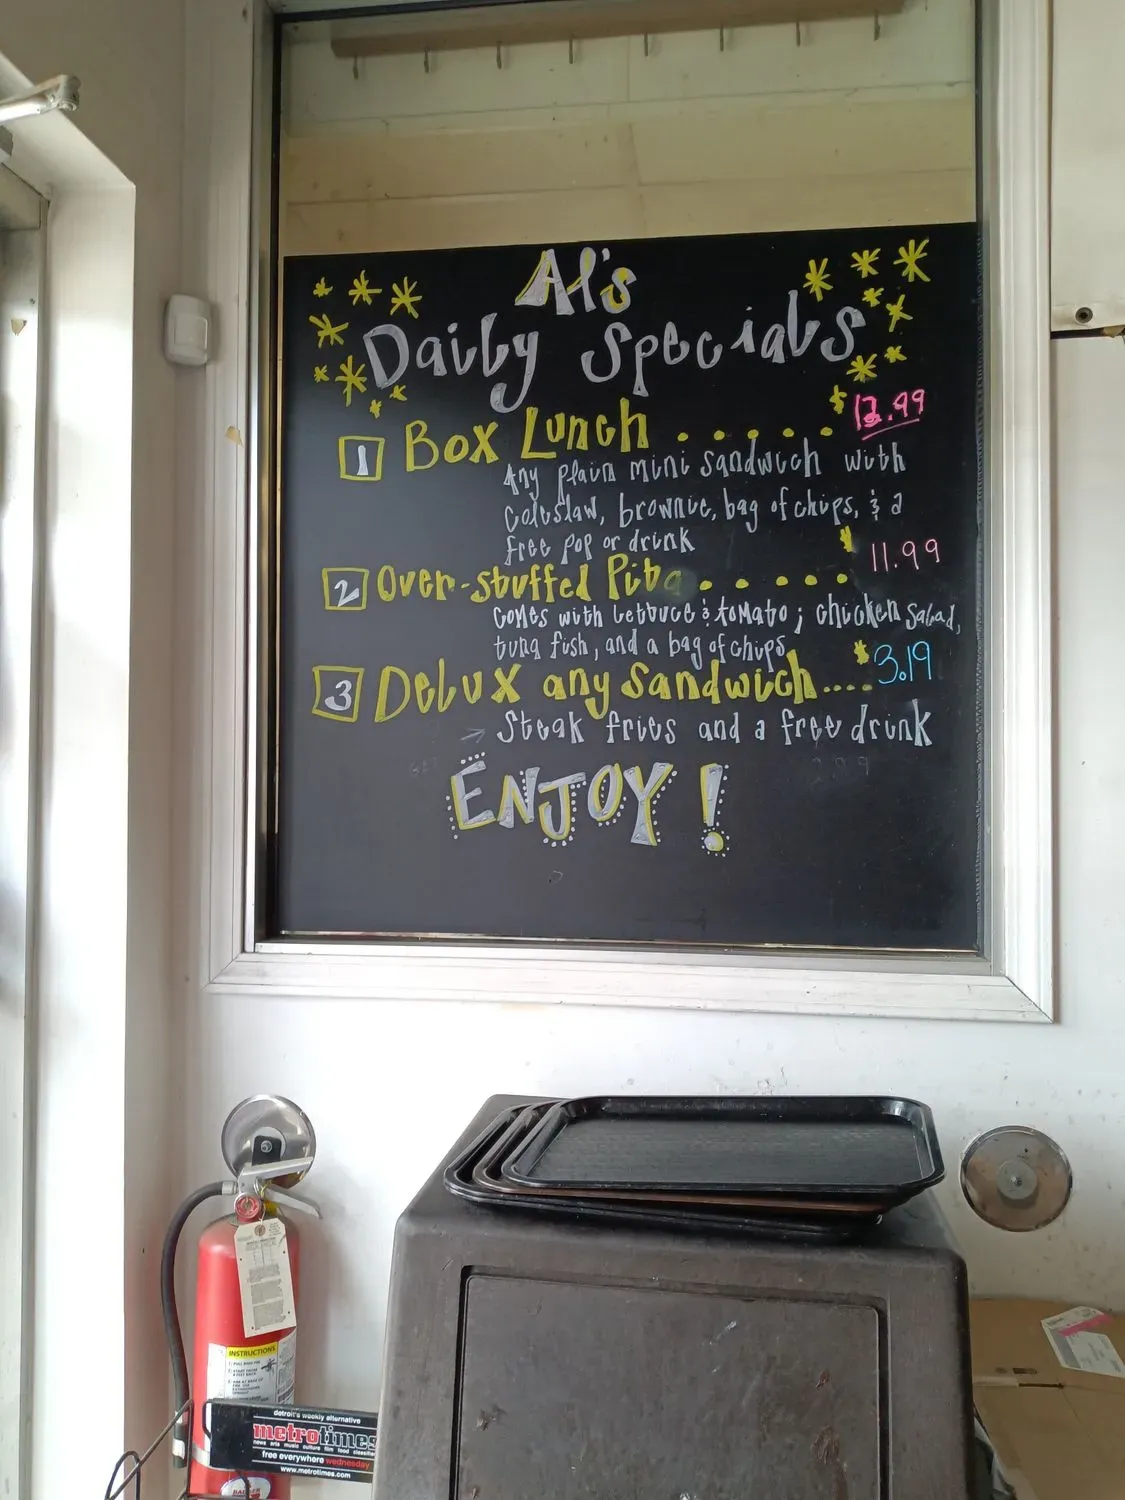 Al's
Daily Specials
1 Box Lunch ..... $12.99
Any plain mini sandwich with
coleslaw, brownie, bag of chips, & a
free pop or drink
2 Over-stuffed Pita ..... $11.99
comes with lettuce & tomato; chicken salad,
tuna fish, and a bag of chips
3 Delux any sandwich.... $3.19
→ Steak fries and a free drink
ENJOY!
INSTRUCTIONS
detroit's weekly alternative
metrotimes
news arts music culture film food classifieds
free everywhere wednesday
www.metrotimes.com